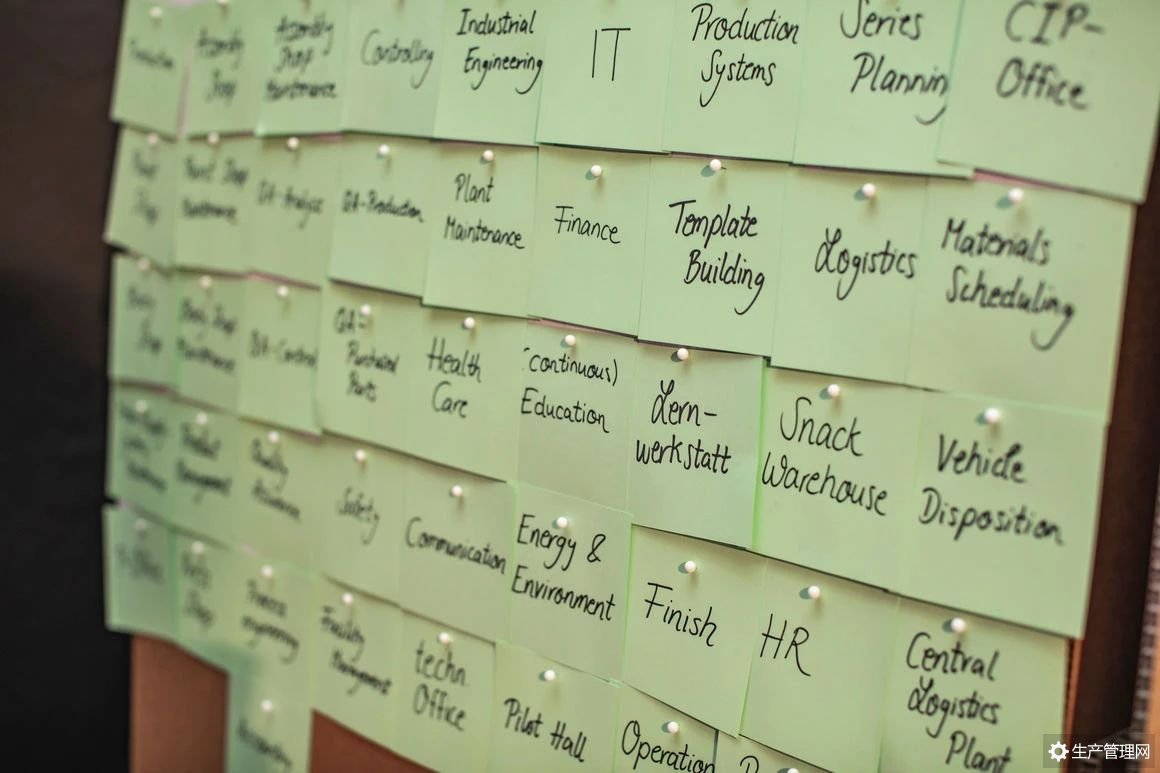 Assembly
Shop
Assembly
Shop
Maintenance
Controlling
Industrial
Engineering
IT
Production
Systems
Series
Planning
CIP-
Office
Paint Shop
Maintenance
QA-Analysis
QA-Production
Plant
Maintenance
Finance
Template
Building
Logistics
Materials
Scheduling
Body
Shop
Body Shop
Maintenance
QA-Central
QA-
Purchased
Parts
Health
Care
(continuous)
Education
Lern-
werkstatt
Snack
Warehouse
Vehicle
Disposition
Product
Management
Quality
Assurance
Safety
Communication
Energy &
Environment
Finish
HR
Central
Logistics
Plant
Process
engineering
Facility
Management
techn.
Office
Pilot Hall
Operation
Accounting
生产管理网